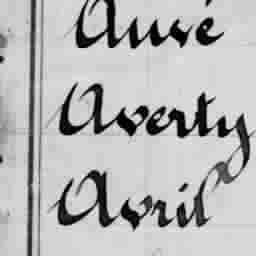 Auvé
Averty
Avril